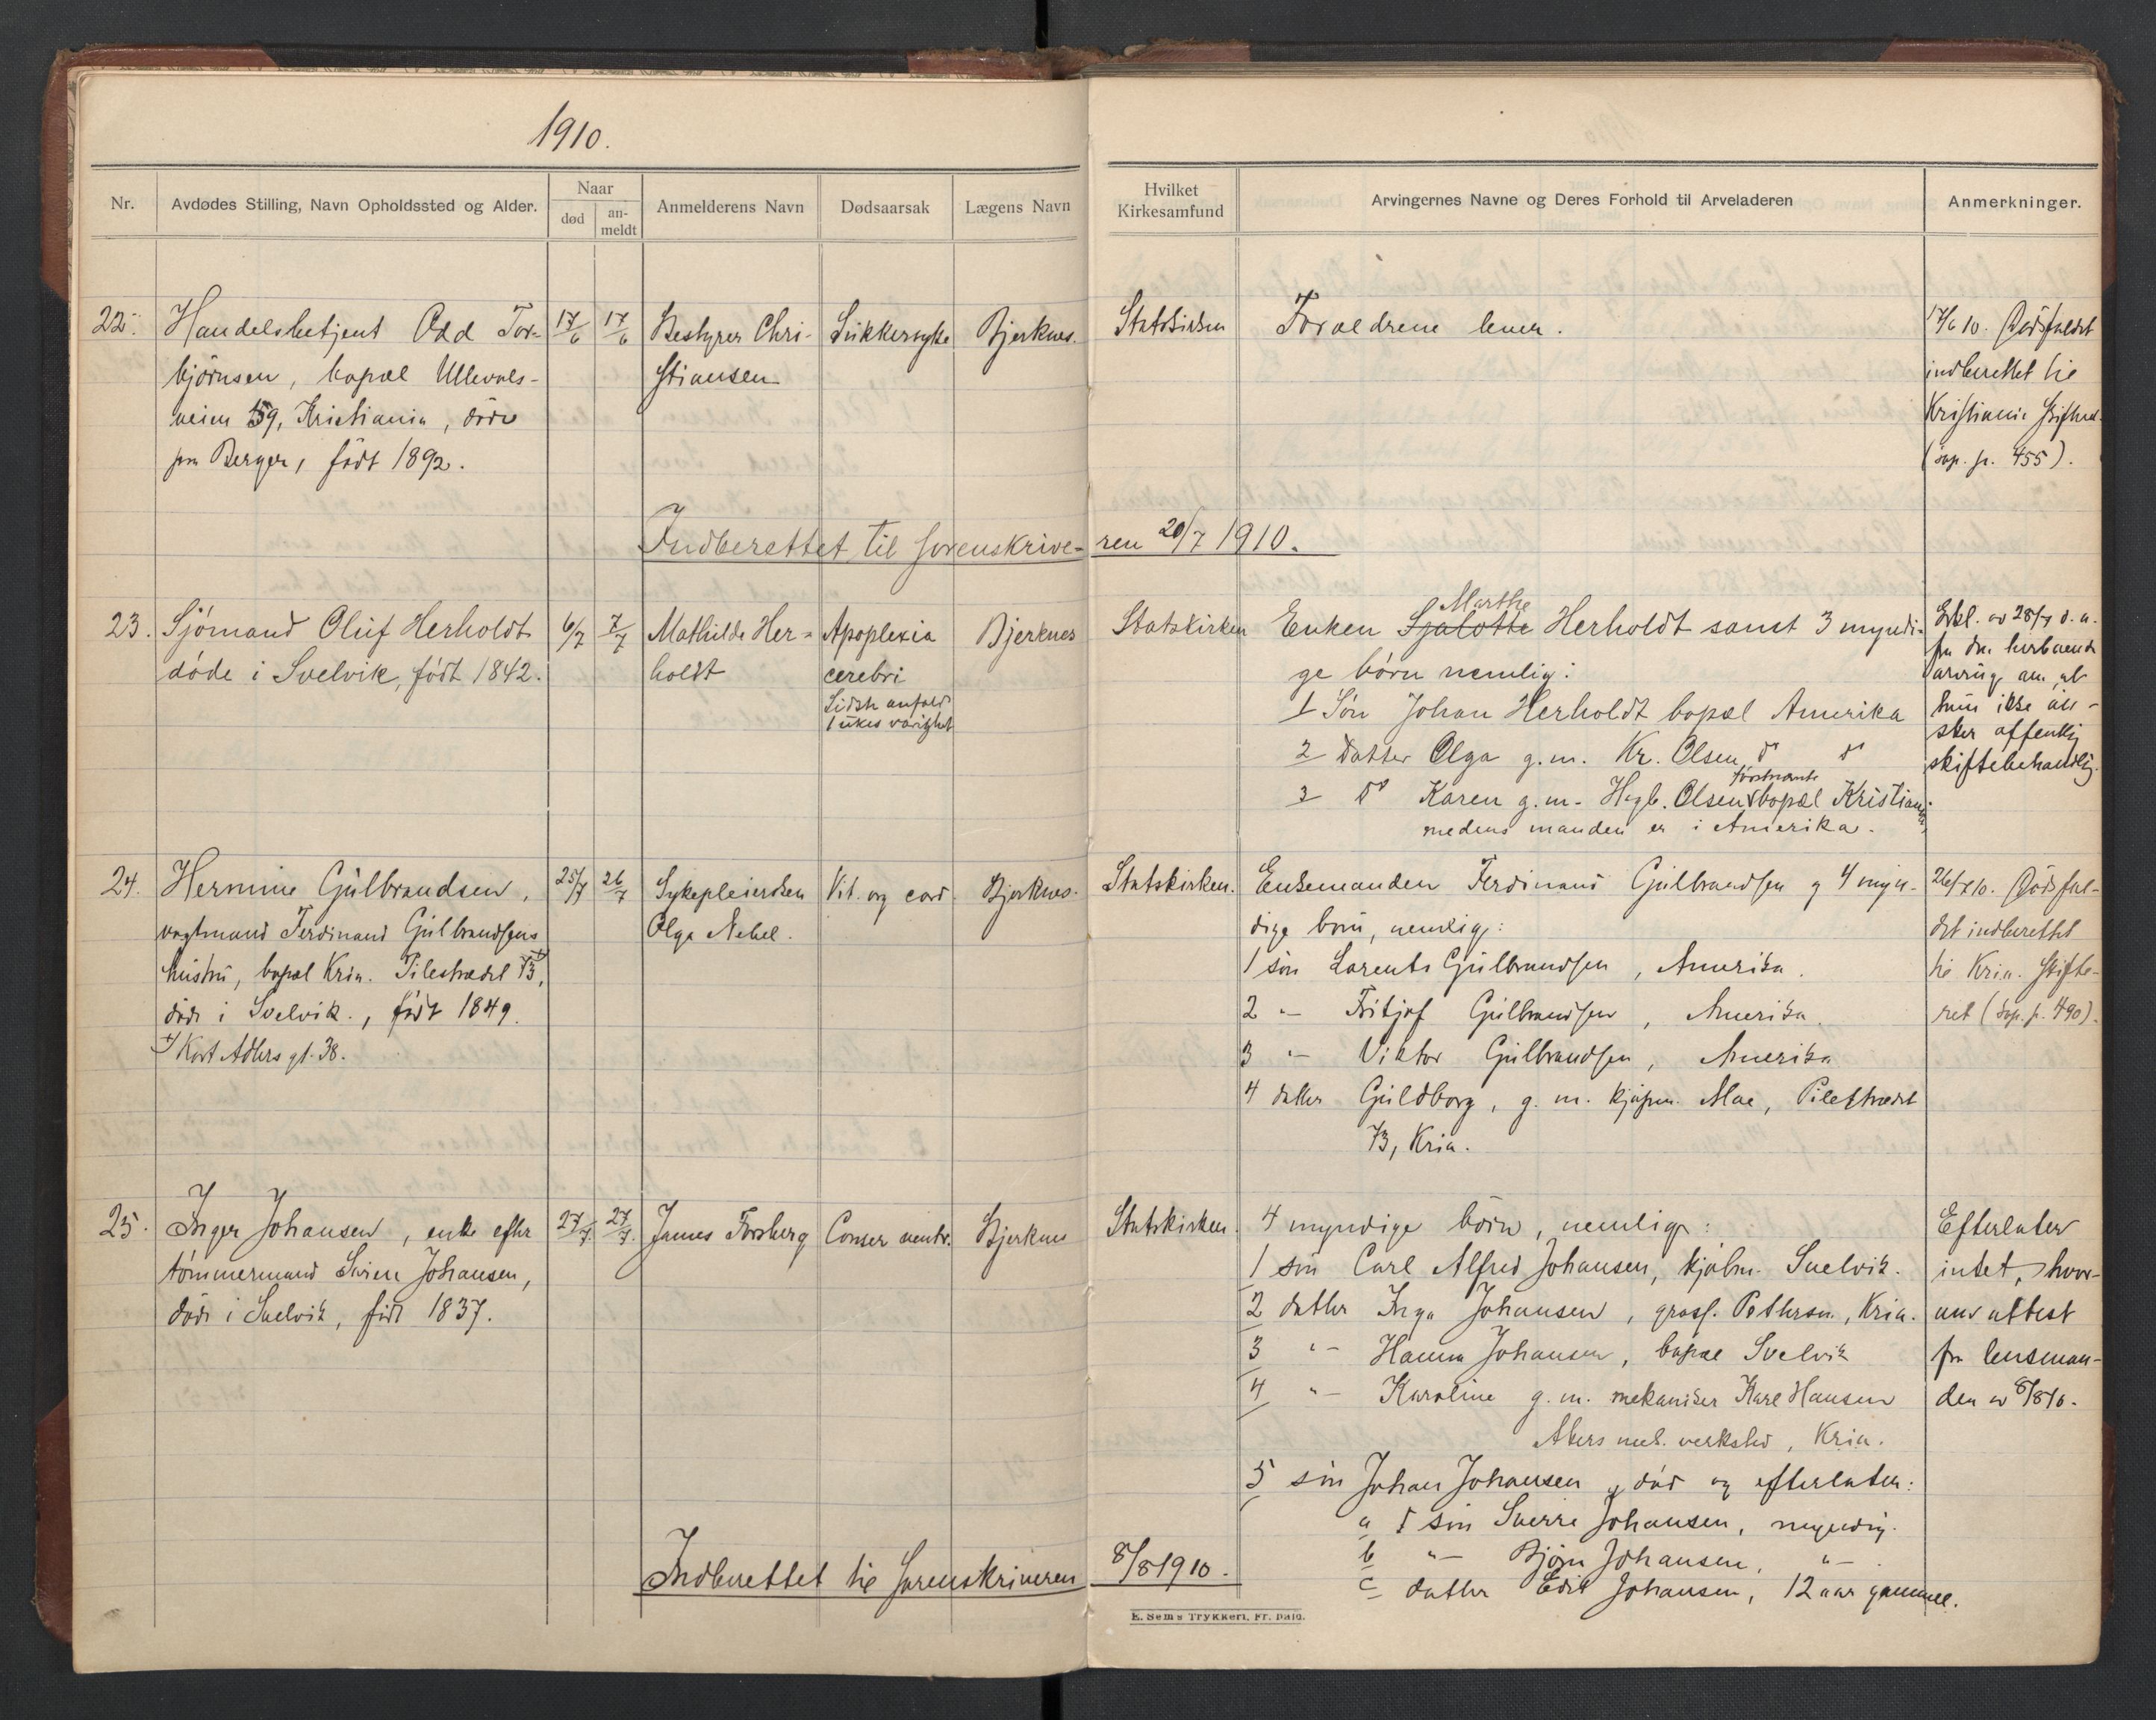 1910.
Nr.
Avdødes Stilling, Navn Opholdssted og Alder.
Naar
død
an-
meldt
Anmelderens Navn
Dødsaarsak
Lægens Navn
Hvilket
Kirkesamfund
Arvingernes Navne og Deres Forhold til Arveladeren
Anmerkninger.
22.
Handelsbetjent Odd Tor-
bjørnsen, bopæl Ullevols-
veien 59, Kristiania, døde
paa Berger, født 1892.
17/6
17/6
Bestyrer Chri-
stiansen
Sukkersyke
Bjerknes.
Statskirken
Forældrene lever.
17/6 10. Dødsfaldet
indberettet til
Kristiania Skifteret
(kop. p. 455).
Indberettet til sorenskrive-
ren 20/7 1910.
23.
Sjømand Oluf Herholdt
døde i Svelvik, født 1842.
6/7
7/7
Mathilde Her-
holdt
Apoplexia
cerebri
Sidste anfald
1 ukes varighet
Bjerknes
Statskirken
Marthe
Enken Sjalotte Herholdt samt 3 myndi-
ge børn nemlig:
1 Søn Johan Herholdt bopæl Amerika
2 Datter Olga g.m. Kr. Olsen do do
førstnævnte
3 do Karen g.m. Hegb. Olsen bopæl Kristiania,
medens manden er i Amerika.
Erkl. av 28/7 d.a.
fra den
arving om, at
hun ikke øn-
sker offentlig
skiftebehandlig.
24.
Hermine Gulbrandsen,
vagtmand Ferdinand Gulbrandsens
hustru, bopæl Kria. Pilestrædet 73, x)
døde i Svelvik., født 1849.
x) Kort Adlers gt. 38.
25/7
26/7
Sykepleiersken
Olga Nebel.
Vit. org cord.
Bjerknes.
Statskirken.
Enkemanden Ferdinand Gulbrandsen og 4 myn-
dige børn, nemlig:
1 søn Lorents Gulbrandsen, Amerika.
2 " - Fritjof Gulbrandsen, Amerika.
3 " - Viktor Gulbrandsen, Amerika
4 datter Guldborg, g. m. kjøpm. Moe, Pilestrædet
73, Kria.
26/7 10. Dødsfal-
det indberettet
til Kria. Skifte-
ret (kop. p. 490).
25.
Inger Johansen, enke efter
tømmermand Søren Johansen,
døde i Svelvik, født 1837.
27/7
27/7.
James Forsberg
Cancer ventr.
Bjerknes
Statskirken.
4 myndige børn, nemlig:
1 søn Carl Alfred Johansen, kjøbm. Svelvik.
2 datter Inga Johansen, gross. Pettersen, Kria.
3 " - Hanna Johansen, bopæl Svelvik
4 " - Karoline g. m. mekaniker Karl Hansen
Akers mek. verksted, Kria.
5 søn Johan Johansen, død og efterlater:
a søn Sverre Johansen, myndig.
b " - Bjørn Johansen, " - .
c datter Edit Johansen, 12 aar gammel.
Efterlater
intet, hvor-
om attest
fra lensman-
den av 8/8 10.
Indberettet til Sorenskriveren
8/8 1910.
E. Sems Trykkeri, Fr. hald.